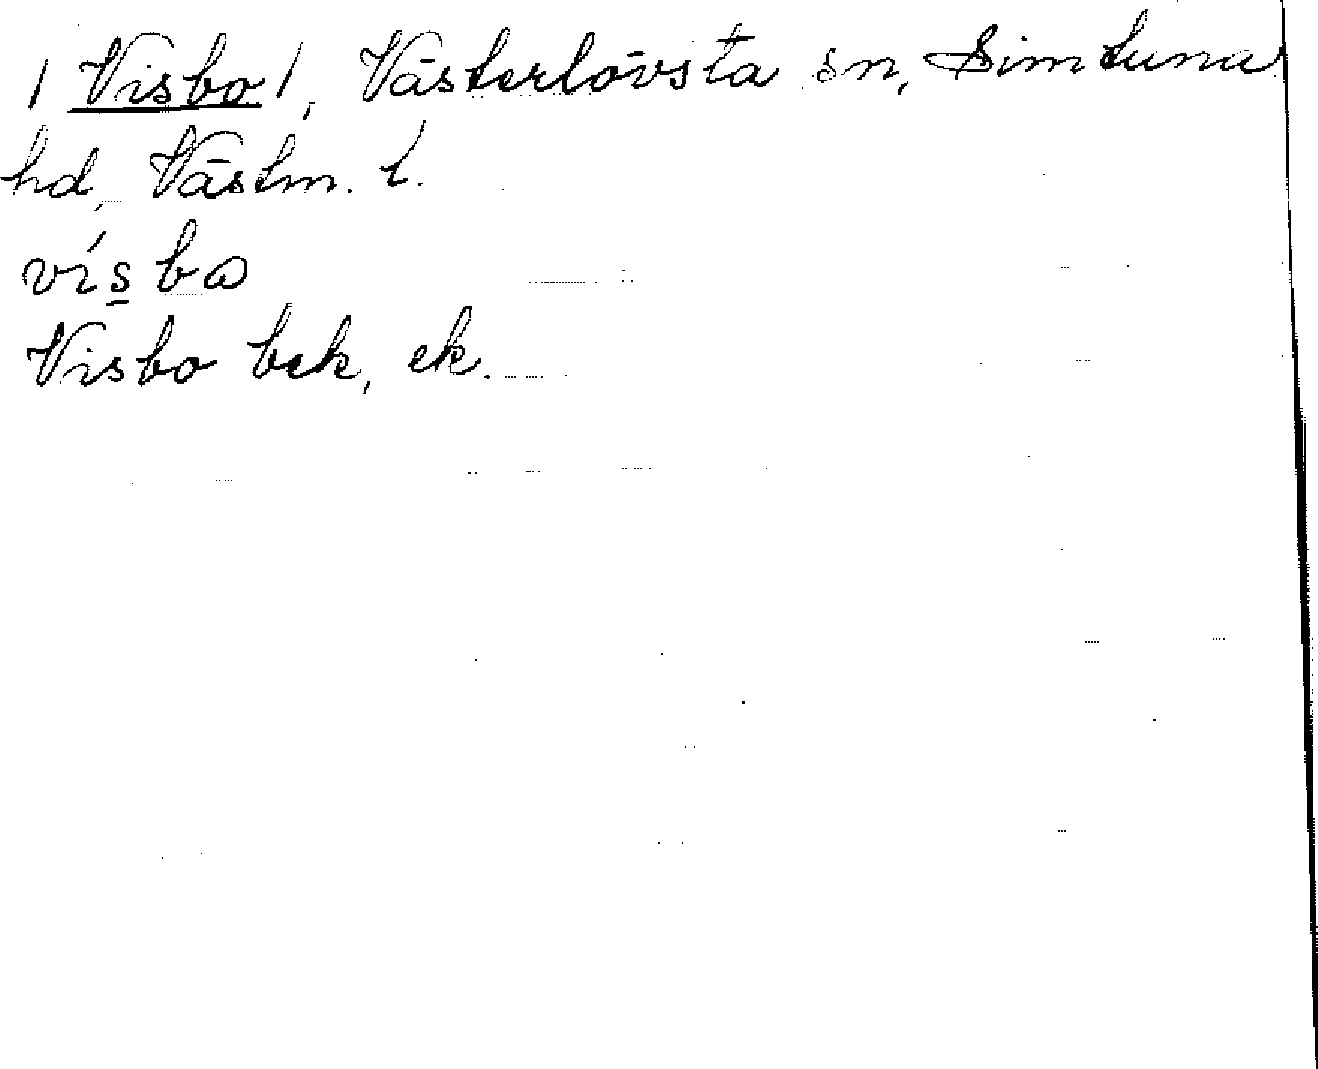 / Visbo /, Västerlövsta sn, Simtuna
hd, Västm. l.
vísbα
Visbo bek, ek.